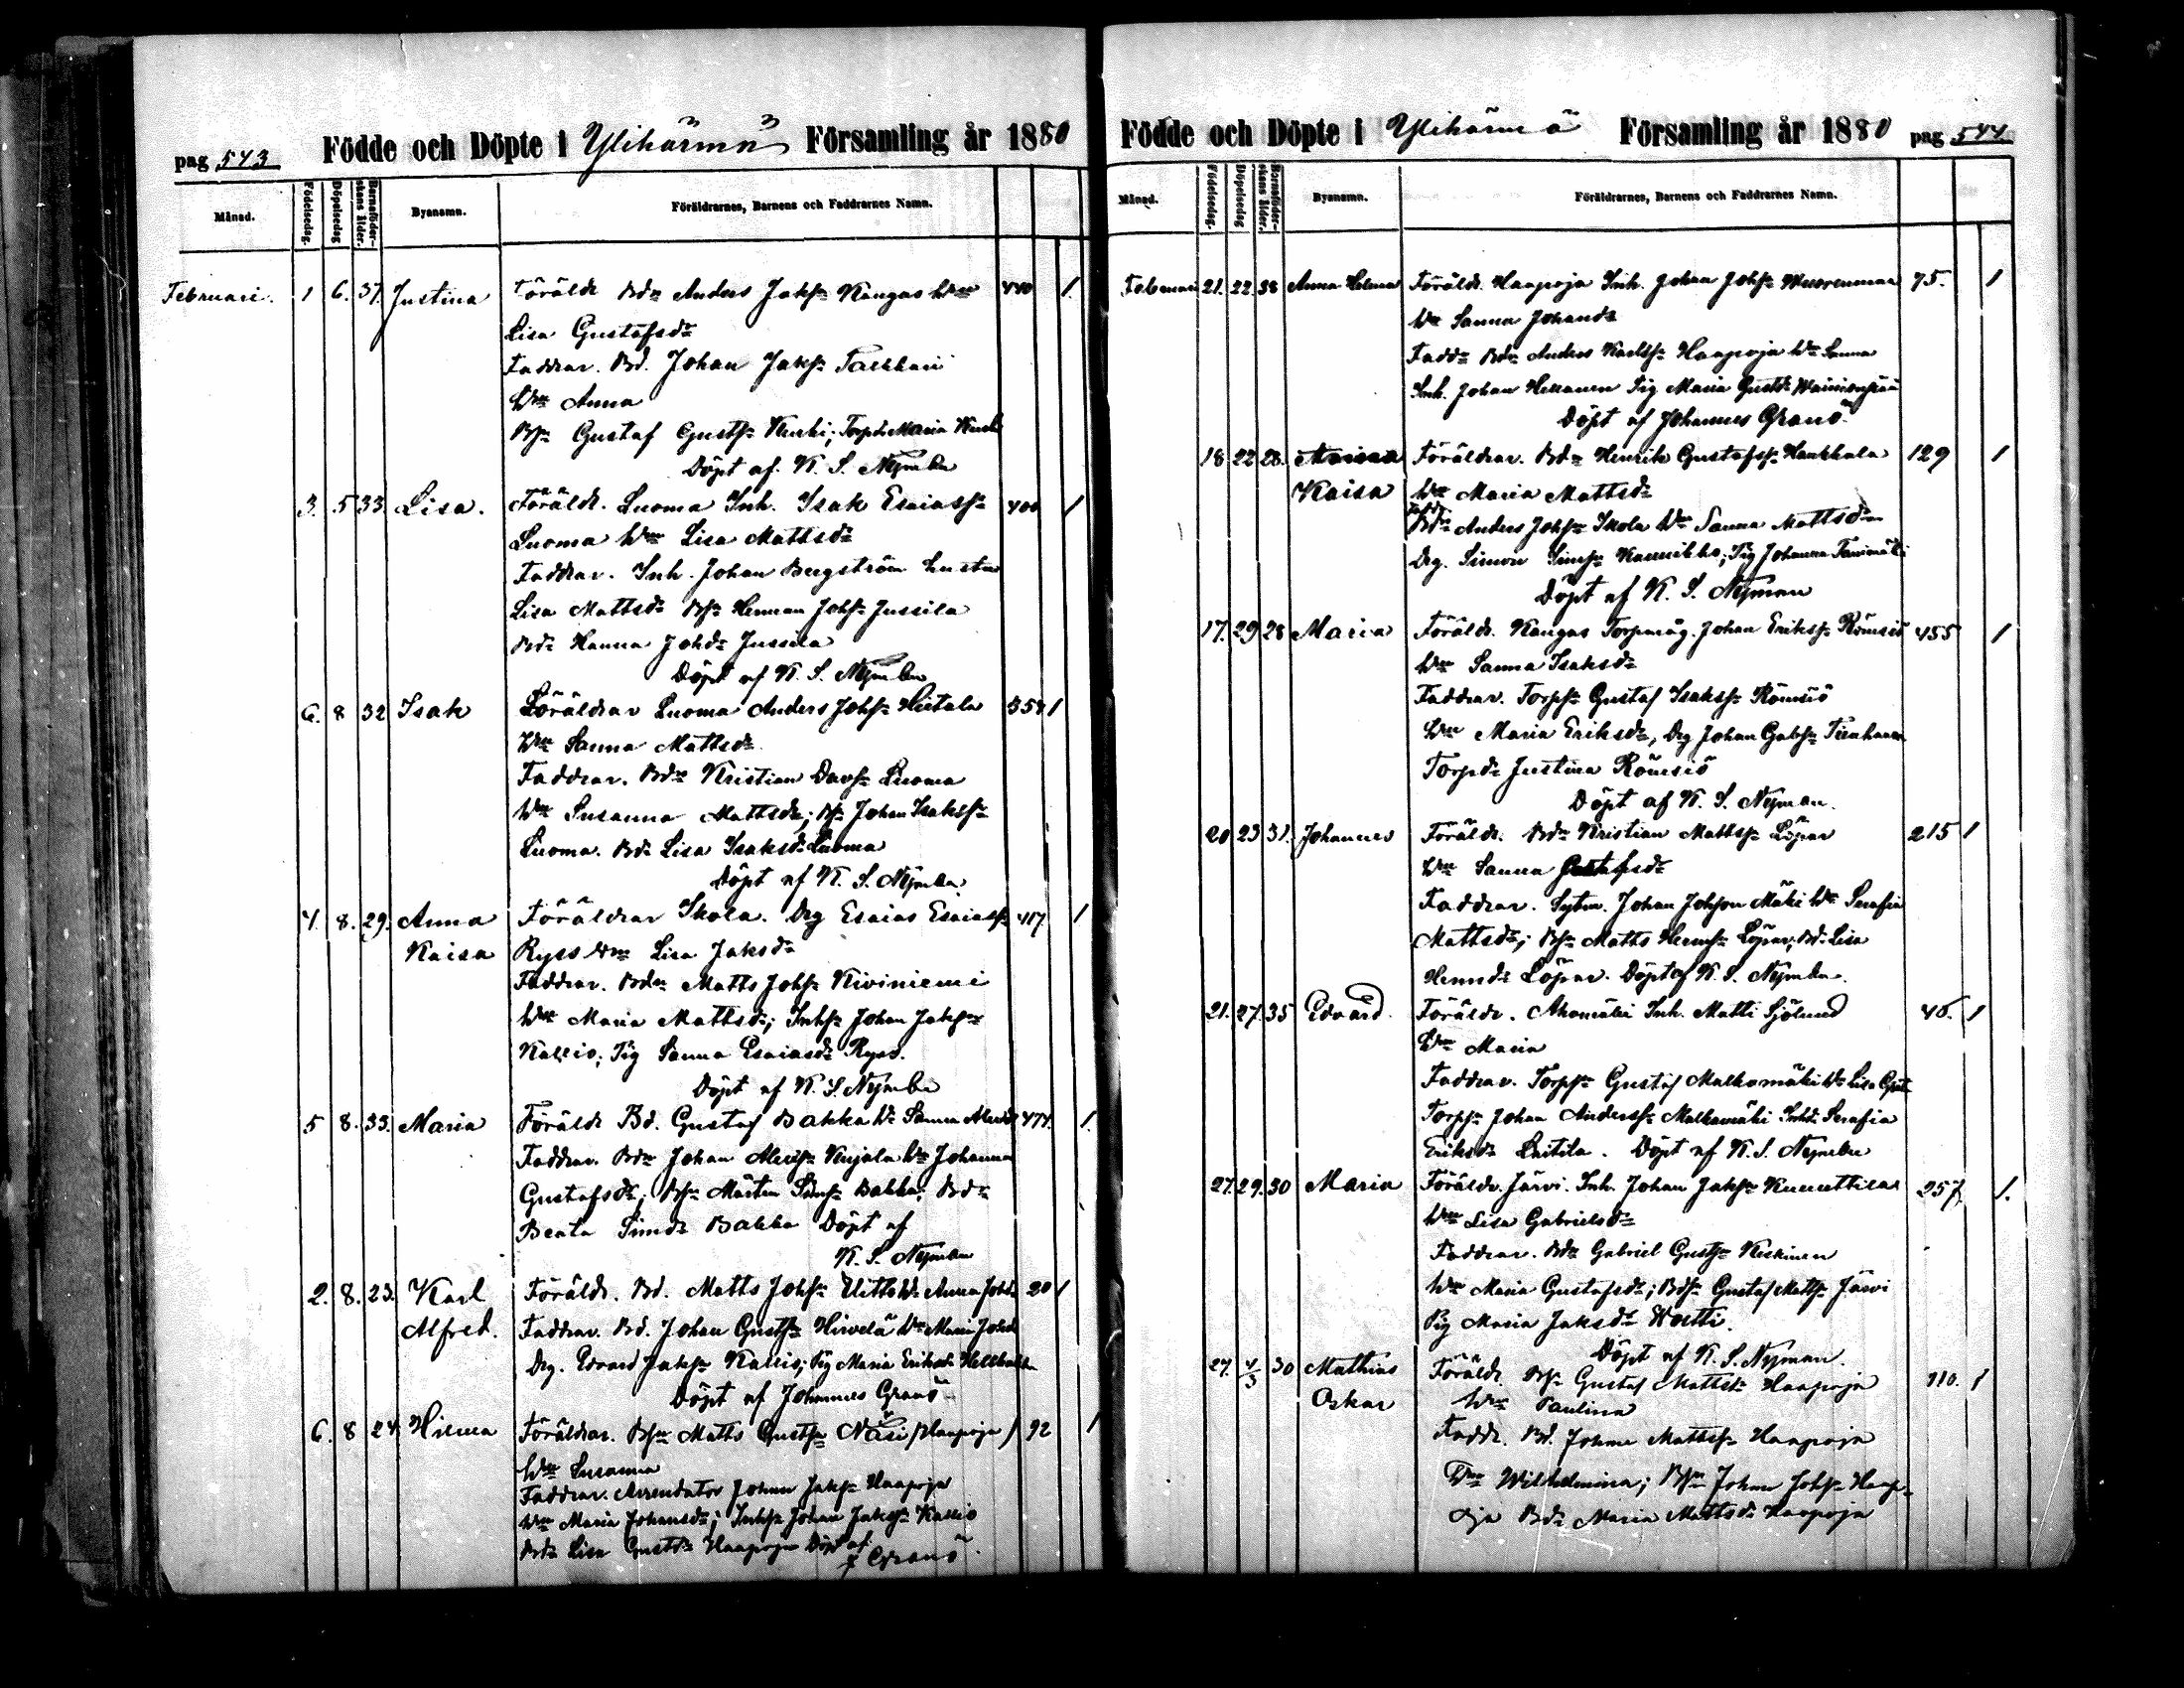 pag 543 Födde och Döpte i Ylihärmä Församling år 1880
Månad. Födelsedag. Döpelsedag Barnaföderskans ålder. Bynamn. Föräldrarnes, Barnens och Faddrarnes Namn.
Februari. 1 6. 37. Justina Föräldr Bdn Andes Jakss Kangas hm 440 1.
Lisa Gustafsdr
Faddrar. Bd. Johan Jakss
hm Anna
Bs Gustaf Gustss Kurki; Torpdr Maria Kurki
Döpt af. K. S. Nyman
3. 5 33 Lisa. Föräldr. Luoma Inh. Isak Esaiass 400 1
Luoma hm Lisa Mattsdr
Faddrar. Inh. Johan Bergström hustru
Lisa Mattsdr Bs Herman Johss Jussila
Bdr Hanna Johdr Jussila
Döpt af K. S. Nyman
6. 8 32 Isak Föräldrar Luoma Anders Johss Hietala 354 1
hm Sanna Mattsdr
Faddrar. Bdn Kristian Davss Luoma
hm Susanna Mattsdr; Bs Johan Isakss
Luoma. Bdr Lisa Isaksdr Luoma
Döpt af K. S. Nyman
4. 8. 29. Anna Föräldrar Skola. Drg Esaias Esaiass 417. 1
Kaisa Ryss hm Lisa Jaksdr
Faddrar. Bdn Matts Johss Kiviniemi
hm Maria Mattsdr; Inhs Johan Jakss
Kallio; Pig Sanna Esaiasdr Ryss.
Döpt af K. S. Nyman
5 8. 33. Maria Föräldr Bd. Gustaf Bakka h. Sanna 474. 1.
Faddrar. Bdn Johan Kujala hm Johanna
Gustafsdr; Bs Mårten Simss Bakka; Bdr
Beata Simdr Bakka Döpt af
K. S. Nyman
2. 8. 23. Karl Föräldr. Bd. Matts Johss h. Anna Johdr 20 1
Alfred. Faddrar. Bd. Johan Gustss Hirvelä hm Maria Johdr
Drg. Edvard Jakss Kallio; Pig Maria Eriksdr
Döpt af Johannes Granö
6. 8 24 Hilma Föräldrar. Bs Matts Gustss Näsi /Haapoja/ 92 1
hm Susanna
Faddrar. Arrendator Johan Jakss Haapoja
hm Maria Johansdr; Inhs Johan Jakss Kallio
Bdr Lisa Gustdr Haapoja Döpt af
J Granö
Födde och Döpte i Ylihärmä Församling år 1880 pag 544
Månad. Födelsedag. Döpelsedag Barnaföderskans ålder. Bynamn. Föräldrarnes, Barnens och Faddrarnes Namn.
Februari 21. 22. 38 Anna Helena Föräldr. Haapoja Inh. Johan Johss Wuorenmaa 75. 1
hm Sanna Johandr
Faddr Bdn Anders Karlss Haapoja hm Sanna
Inh. Johan Pig Maria Gustdr Wainionpää
Döpt af Johannes Granö
18 22 28. Föräldrar. Bdn Henrik Gustafss Haukkala 129 1
Kaisa hm Maria Mattsdr
Bdn Anders Johss Skola hm Sanna Mattsdr
Drg. Simon Simss; Pig Johanna
Döpt af K. S. Nyman
17. 29 28 Maria Föräldr. Kangas Torpmåg. Johan Erikss Römsiö 455 1
hm Sanna Isaksdr
Faddrar. Torps Gustaf Isakss Römsiö
hm Maria Eriksdr, Drg Johan Gabss
Torpdr Justina Römsiö
Döpt af K. S. Nyman.
20 23 31. Johannes Föräldr. Bdn Kristian Mattss Löpar 215 1
hm Sanna Gustafsdr
Faddrar. Sytn. Johan Johsson Mäki hm Serafia
Mattsdr; Bs Matts Hermss Löpar; Bdr Lisa
Hermdr Löpar. Döpt af K. S. Nyman.
21. 27. 35 Edvard. Föräldr. Ahomäki Inh. Matti Sjölund 46. 1
hm Maria
Faddrar. Torps Gustaf Malkamäki h Lisa
Torps Johan Anderss Malkamäki Inhdr Serafia
Eriksdr Laitila. Döpt af K. S. Nyman
27. 29. 30 Maria Föräldr. Järvi. Inh. Johan Jakss 257 1.
hm Lisa Gabrielsdr
Faddrar. Bdn Gabriel Gustss Keskinen
hm Maria Gustafsdr; Bds Gustaf Mattss Järvi
Pig Maria Jaksdr Woltti.
Döpt af K. S. Nyman.
27. 4/3 30 Mathias Föräldr. Bs Gustaf Mattss Haapoja 110. 1
Oskar hm Paulina
Faddr. Bd. Johan Mattss Haapoja
hm Wilhelmina; Bs Johan Johss Haap-
oja Bdr Maria Mattsdr Haapoja